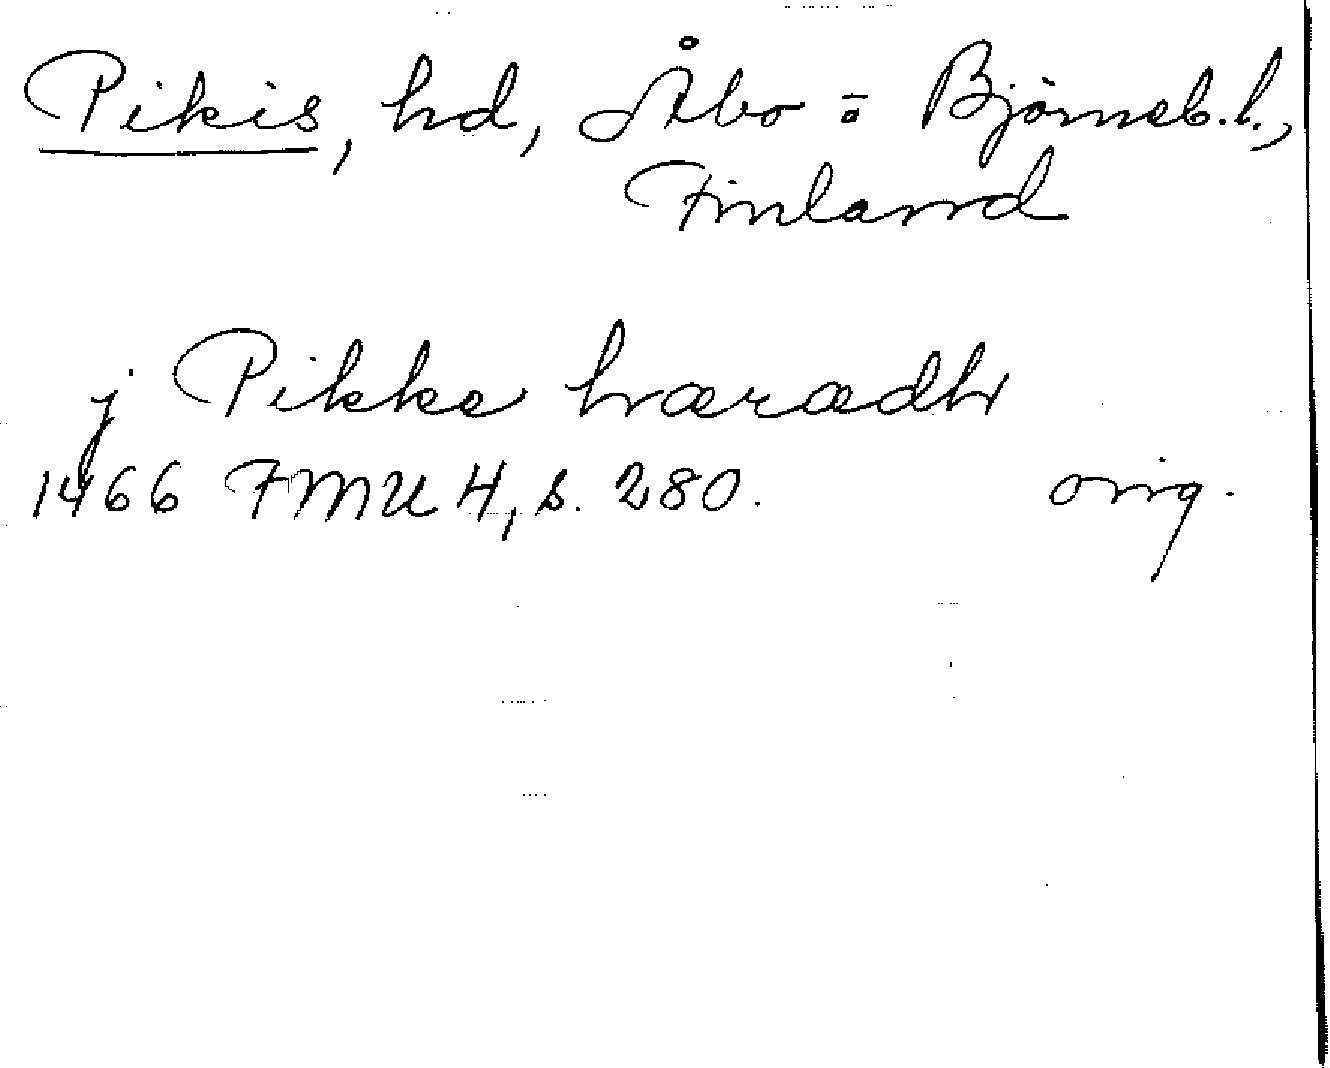 Pikis, hd, Åbo o Björneb. l.,
Finland
j Pikke hæradh
1466 FMU 4, s. 280. orig.